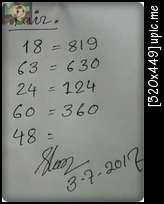 18 = 819
63 = 630
24 = 124
60 = 360
48 =
3-7.2017
[320x449]upic.me